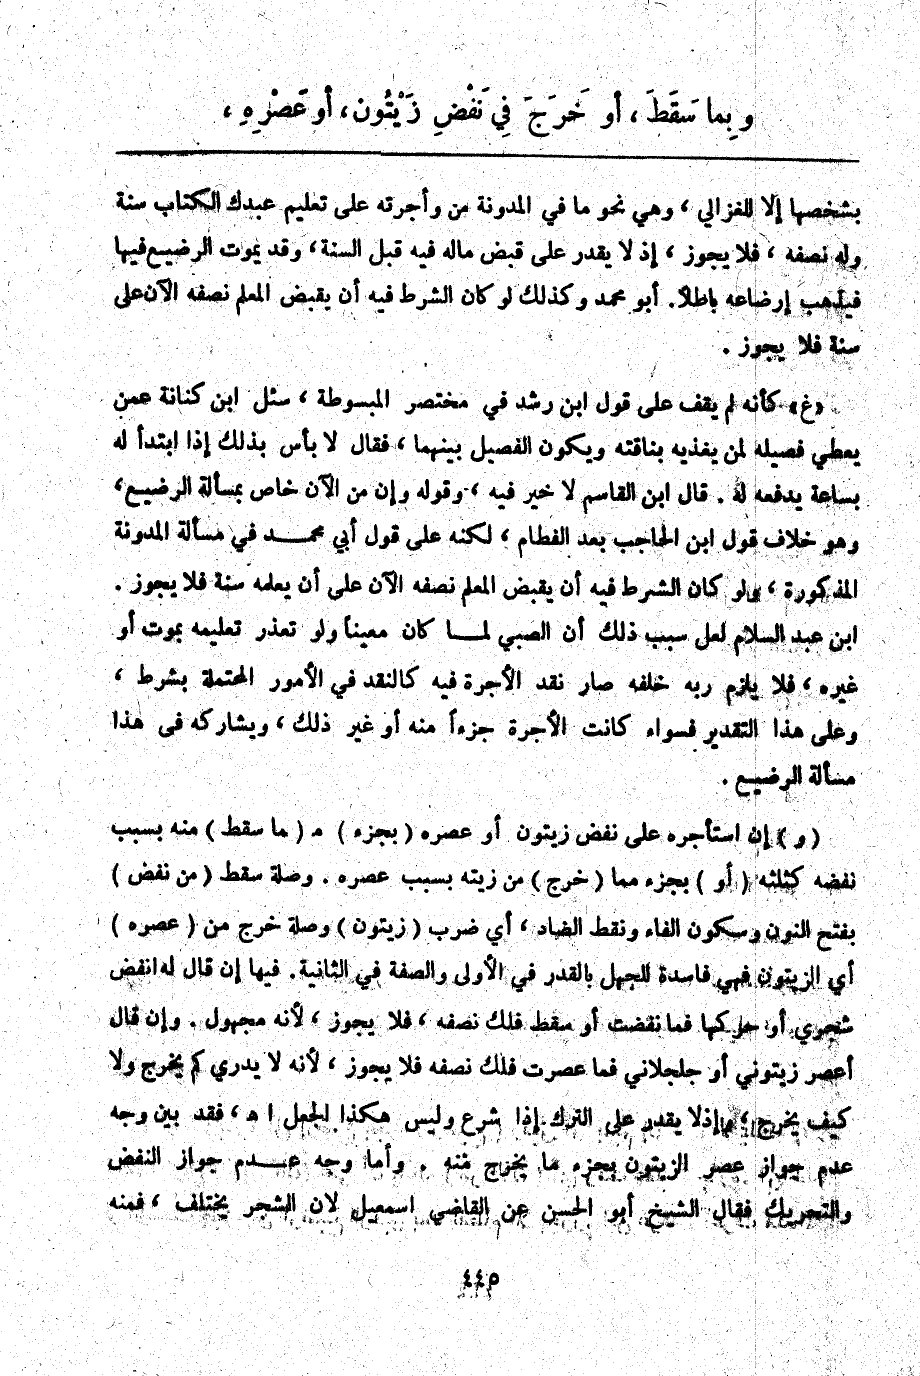 وبِما سَقَطَ، أو خَرَجَ فِي نَفْضِ زَيْتُون، أو عَصْرِهِ،
بشخصها إلا للغزالي، وهي نحو ما في المدونة من وأجرته على تعليم عبدك الكتاب سنة
وله نصفه، فلا يجوز، إذ لا يقدر على قبض ماله فيه قبل السنة، وقد يموت الرضيع فيها
فيذهب إرضاعه باطلاً. أبو محمد وكذلك لو كان الشرط فيه أن يقبض المعلم نصفه الآن على
سنة فلا يجوز.
«غ» كأنه لم يقف على قول ابن رشد في مختصر المبسوطة، سئل ابن كنانة عمن
يعطي فصيله لمن يغذيه بناقته ويكون الفصيل بينهما، فقال لا بأس بذلك إذا ابتدأ له
بساعة يدفعه له. قال ابن القاسم لا خير فيه، وقوله وإن من الآن خاص بمسألة الرضيع،
وهو خلاف قول ابن الحاجب بعد الفطام، لكنه على قول أبي محمد في مسألة المدونة
المذكورة، ولو كان الشرط فيه أن يقبض المعلم نصفه الآن على أن يعلمه سنة فلا يجوز.
ابن عبد السلام لعل سبب ذلك أن الصبي لما كان معيناً ولو تعذر تعليمه بموت أو
غيره، فلا يلزم ربه خلفه صار نقد الأجرة فيه كالنقد في الأمور المحتملة بشرط،
وعلى هذا التقدير فسواء كانت الأجرة جزءاً منه أو غير ذلك، ويشاركه فى هذا
مسألة الرضيع.
(و) إن استأجره على نفض زيتون أو عصره (بجزء) مـ (ما سقط) منه بسبب
نفضه كثلثه (أو) بجزء مما (خرج) من زيته بسبب عصره. وصلة سقط (من نفض)
بفتح النون وسكون الفاء ونقط الضاد، أي ضرب (زيتون) وصلة خرج من (عصره)
أي الزيتون فهي فاسدة للجهل بالقدر في الأولى والصفة في الثانية. فيها إن قال له انفض
شجري أو حركها فما نفضت أو سقط فلك نصفه، فلا يجوز، لأنه مجهول. وإن قال
أعصر زيتوني أو جلجلاني فما عصرت فلك نصفه فلا يجوز، لأنه لا يدري كم يخرج ولا
كيف يخرج، وإذ لا يقدر على الترك إذا شرع وليس هكذا الجعل ا هـ، فقد بين وجه
عدم جواز عصر الزيتون بجزء ما يخرج منه. وأما وجه عدم جواز النفض
والتحريك فقال الشيخ أبو الحسن عن القاضي اسمعيل لان الشجر يختلف، فمنه
٤٤٥